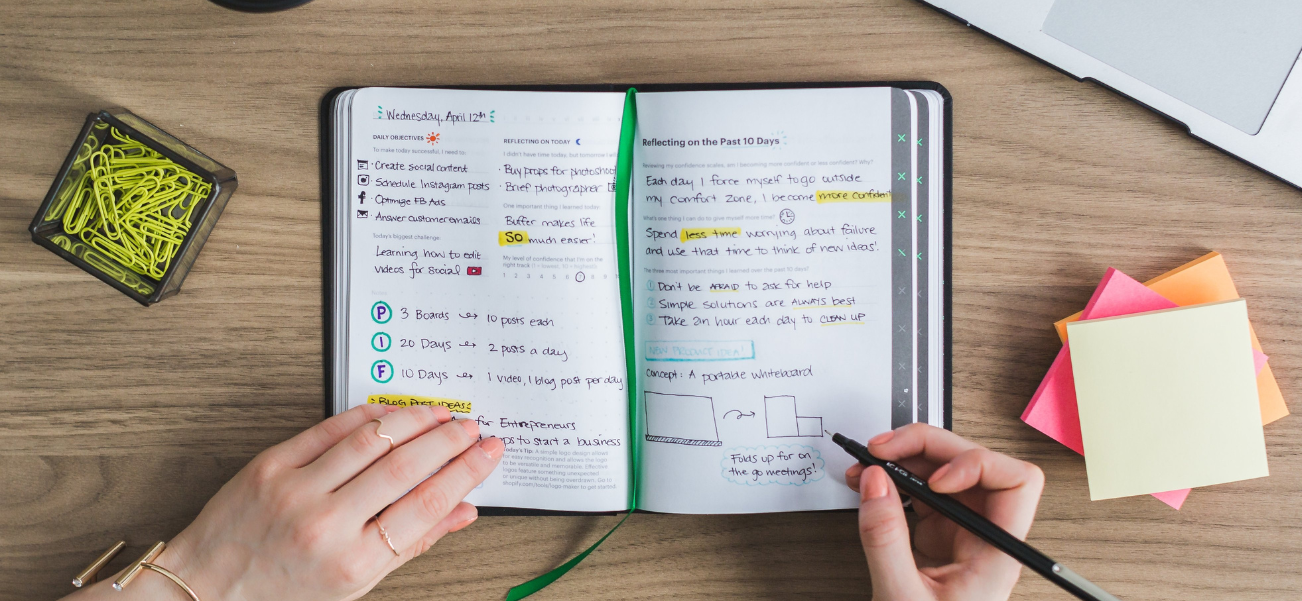 Wednesday, April 12th
DAILY OBJECTIVES
To make today successful, I need to:
· Create social content
· Schedule Instagram posts
· Optimize FB Ads
· Answer customer emails
Today's biggest challenge:
Learning how to edit
videos for social
REFLECTING ON TODAY
I didn't have time today, but tomorrow I will
· Buy props for photoshoot
· Brief photographer
One important thing I learned today
Buffer makes life
SO much easier!
My level of confidence that I'm on the
right track (1 = lowest, 10 = highest)
1 2 3 4 5 6 7 8 9
P 3 Boards → 10 posts each
I 20 Days → 2 posts a day
F 10 Days → 1 video, 1 blog post per day
BLOG POST IDEAS
for Entrepreneurs
to start a business
Today's Tip: A simple logo design allows
for easy recognition and allows the logo
to be versatile and memorable. Effective
logos feature something unexpected
or unique without being overdrawn. Go to
shopify.com/tools/logo-maker to get started.
Reflecting on the Past 10 Days
Reviewing my confidence scales, am I becoming more confident or less confident? Why?
Each day I force myself to go outside
my comfort zone, I become more confident
What's one thing I can do to give myself more time?
Spend less time worrying about failure
and use that time to think of new ideas!
The three most important things I learned over the past 10 days?
1 Don't be AFRAID to ask for help
2 Simple solutions are ALWAYS best
3 Take an hour each day to CLEAN UP
NEW PRODUCT IDEA!
Concept: A portable whiteboard
Folds up for on
the go meetings!